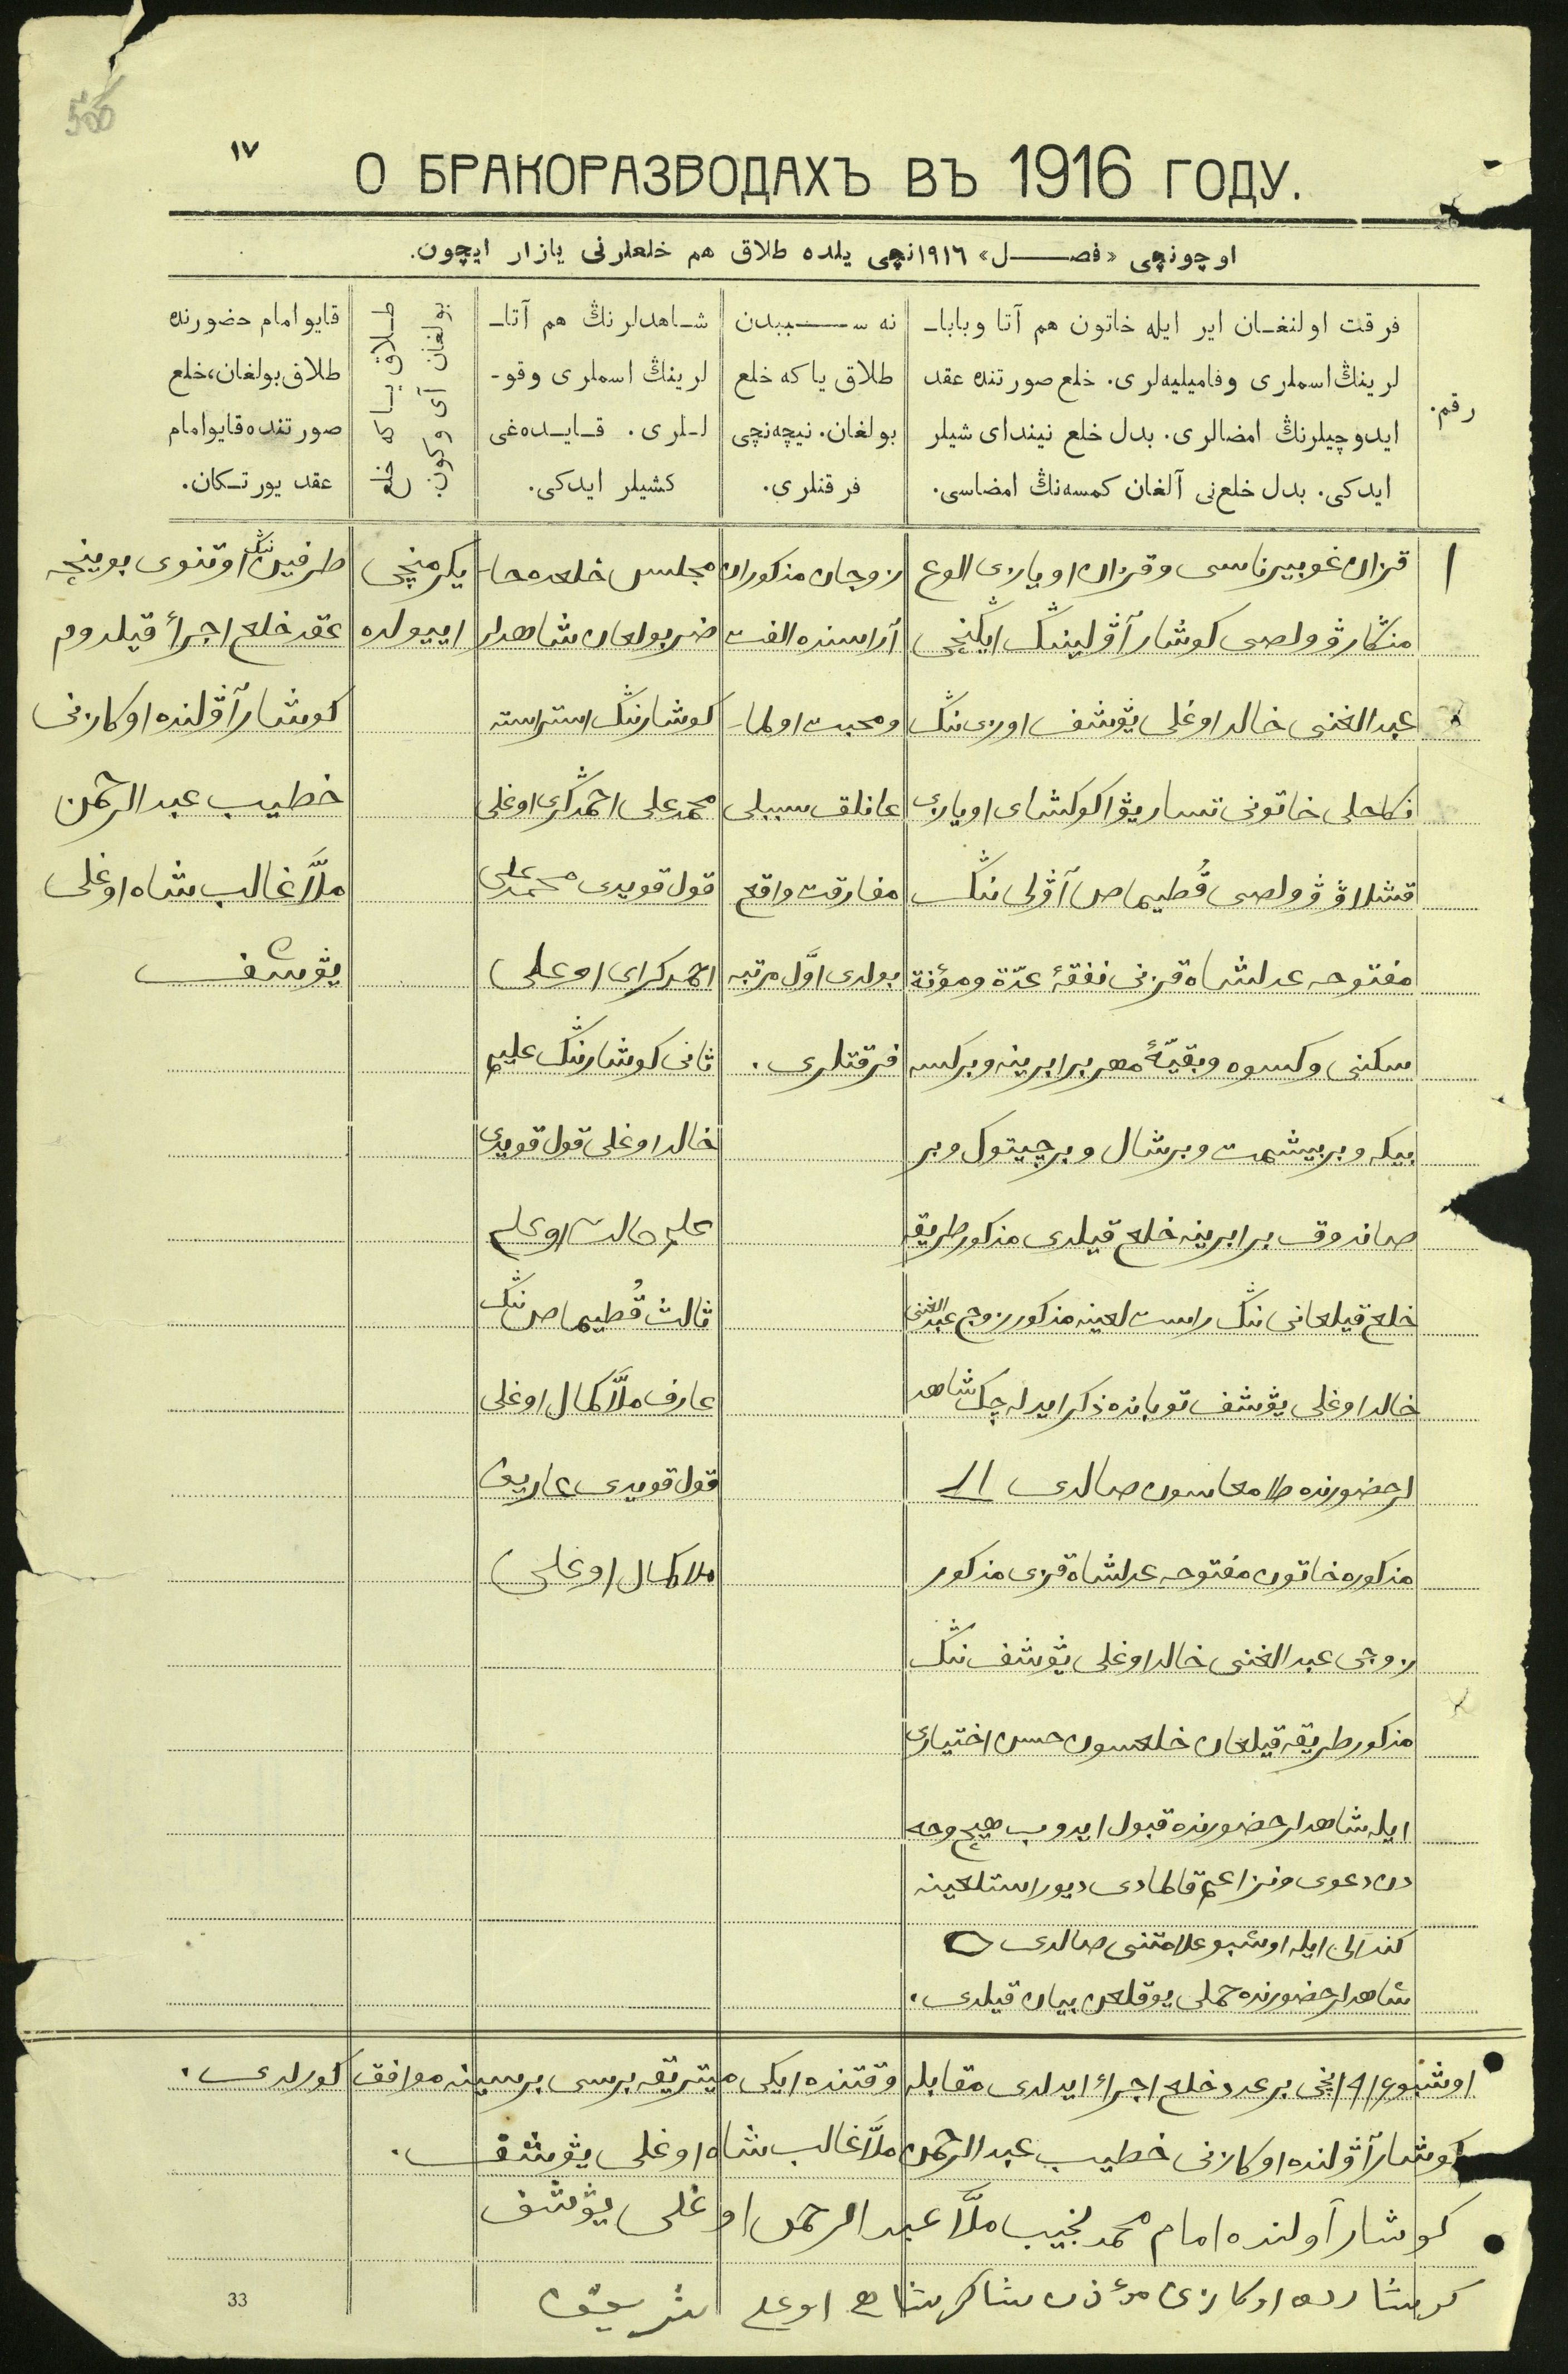 500
١٧
О БРАКОРАЗВОДАХЪ ВЪ 1916 ГОДУ.
اوچونچى «فصل» ١٩١٦نچى يلده طلاق هم خلعلرنى يازار ايچون.
رقم.
فرقت اولنغان اير ايله خاتون هم آتا وبابا-
لرينڭ اسملرى وفاميليه‌لرى. خلع صورتنده عقد
ايدوچيلرنڭ امضالرى. بدل خلع نينداى شيلر
ايدكى. بدل خلع‌نى آلغان كمسه‌نڭ امضاسى.
نه سببدن
طلاق ياكه خلع
بولغان. نيچه‌نچى
فرقتلرى.
شاهدلرنڭ هم آتا-
لرينڭ اسملرى وقو-
للرى. قايده‌غى
كشيلر ايدكى.
طلاق ياكه خلع
بولغان آى وكون.
قايو امام حضورنده
طلاق بولغان، خلع
صورتنده قايو امام
عقد يورتكان.
١
قزان غوبيرناسى وقزان اويازى الوع
منگار ۋولصى كوشار آۋلينڭ ايكنچى
عبدالغنى خالد اوغلى يۋشف اورى ننڭ
نكاحلى خاتونى تساريۋا كوكشاى اويازى
قشلاۋ ۋولصى قُطيماص آۋلى ننڭ
مفتوحه عدلشاه قزنى نفقۀ عدّة ومؤنة
سكنى وكسوه وبقيّۀ مهر برابرينه وبركسه
بيكه وبربيشمت وبرشال وبرچيتوك وبر
صاندوق برابرينه خلع قيلدى مذكور طريقه
خلع قيلغانى ننڭ راست لغينه مذكور زوج عبدالغنى
خالد اوغلى يۋشف توبانده ذكر ايدله‌جك شاهد
لر حضورنده طامغاسون صالدى
مذكوره خاتون مفتوحه عدلشاه قزى مذكور
زوجى عبدالغنى خالد اوغلى يۋشف ننڭ
مذكور طريقه قيلغان خلعسون حسن اختيارى
ايله شاهدلر حضورنده قبول ايدوب هيچ وجه
دن دعوى ونزاعم قالمادى ديو راستلغينه
كند الى ايله اوشبو علامتنى صالدى
شاهدلر حضورنده حملى يوقلغن بيان قيلدى.
زوجان مذكوران
آراسنده الفت
ومحبت اولما-
غانلق سببلى
مفارقت واقع
بولدى اوّل مرتبه
فرقتلرى.
مجلس خلعده حا-
ضر بولغان شاهدلر
كوشارننڭ استراسته
محمدعلى احمدگرى اوغلى
قول قويدى محمدعلى
احمدكراى اوغلى
ثانى كوشارننڭ عليم
خالد اوغلى قول قويدى
عليم خالد اوغلى
ثالث قُطيماص ننڭ
عارف ملّا كمال اوغلى
قول قويدى عاريف
ملا كمال اوغلى
يكرمنچى
اييولده
طرفين ننڭ اوتنوى بوينچه
عقد خلع اجرأ قيلدوم
كوشار آۋلنده اوكازنى
خطيب عبدالرحمن
ملّا غالب شاه اوغلى
يۋشف
اوشبو ١٩١٦نچى برعدد خلع اجراء ايدلدى مقابله وقتنده ايكى ميتريقه برسى برسينه موافق كورلدى.
كوشار آۋلنده اوكازنى خطيب عبدالرحمن ملّا غالب شاه اوغلى يۋشف.
كوشار آولنده امام محمدنجيب ملّا عبدالرحمن اوغلى يۋشف
كوشارده اوكازنى مؤذن شاكرشاه اوغلى شريفف
33